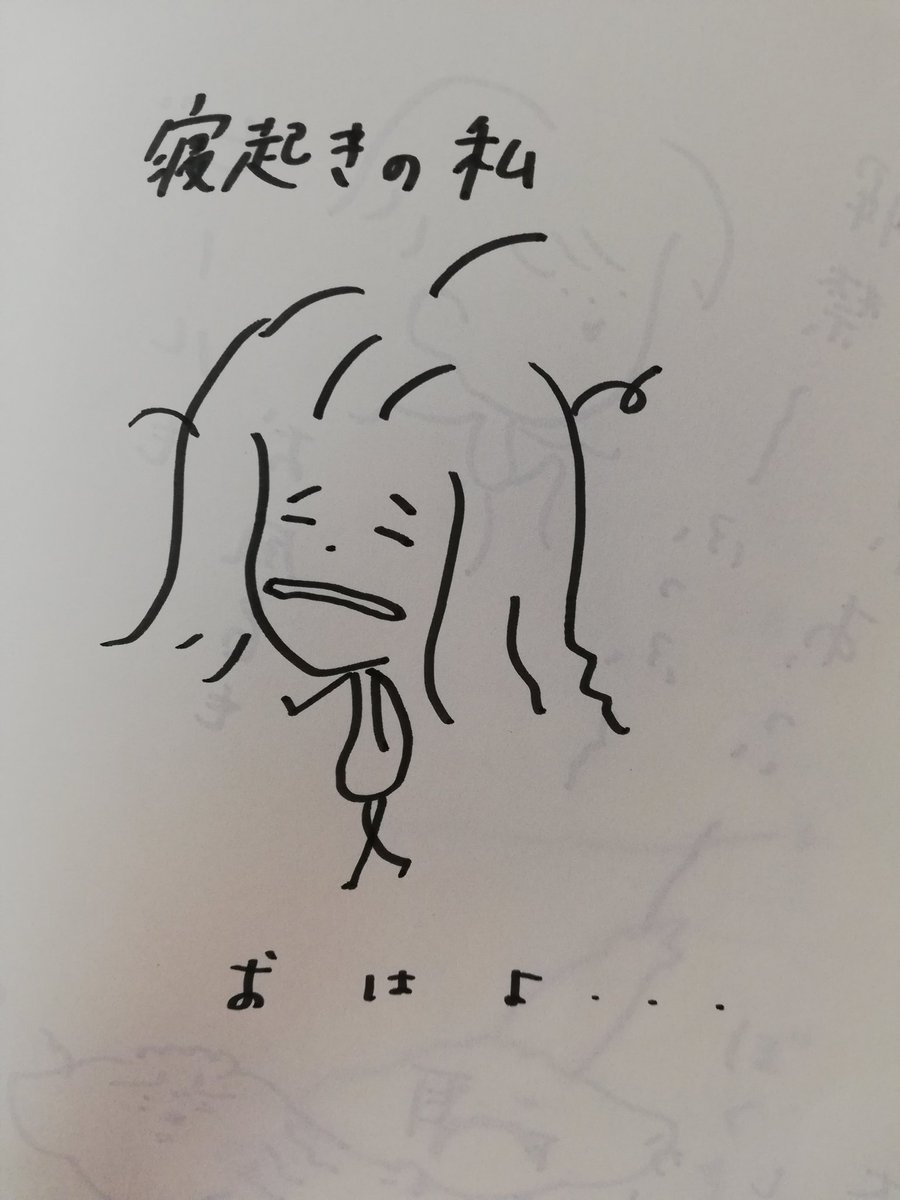 寝起きの私
おはよ...